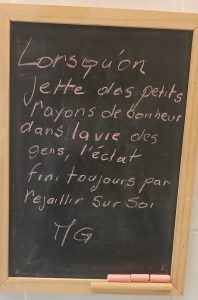 Lorsqu'on
jette des petits
rayons de bonheur
dans la vie des
gens, l'éclat
fini toujours par
rejaillir sur soi
MG